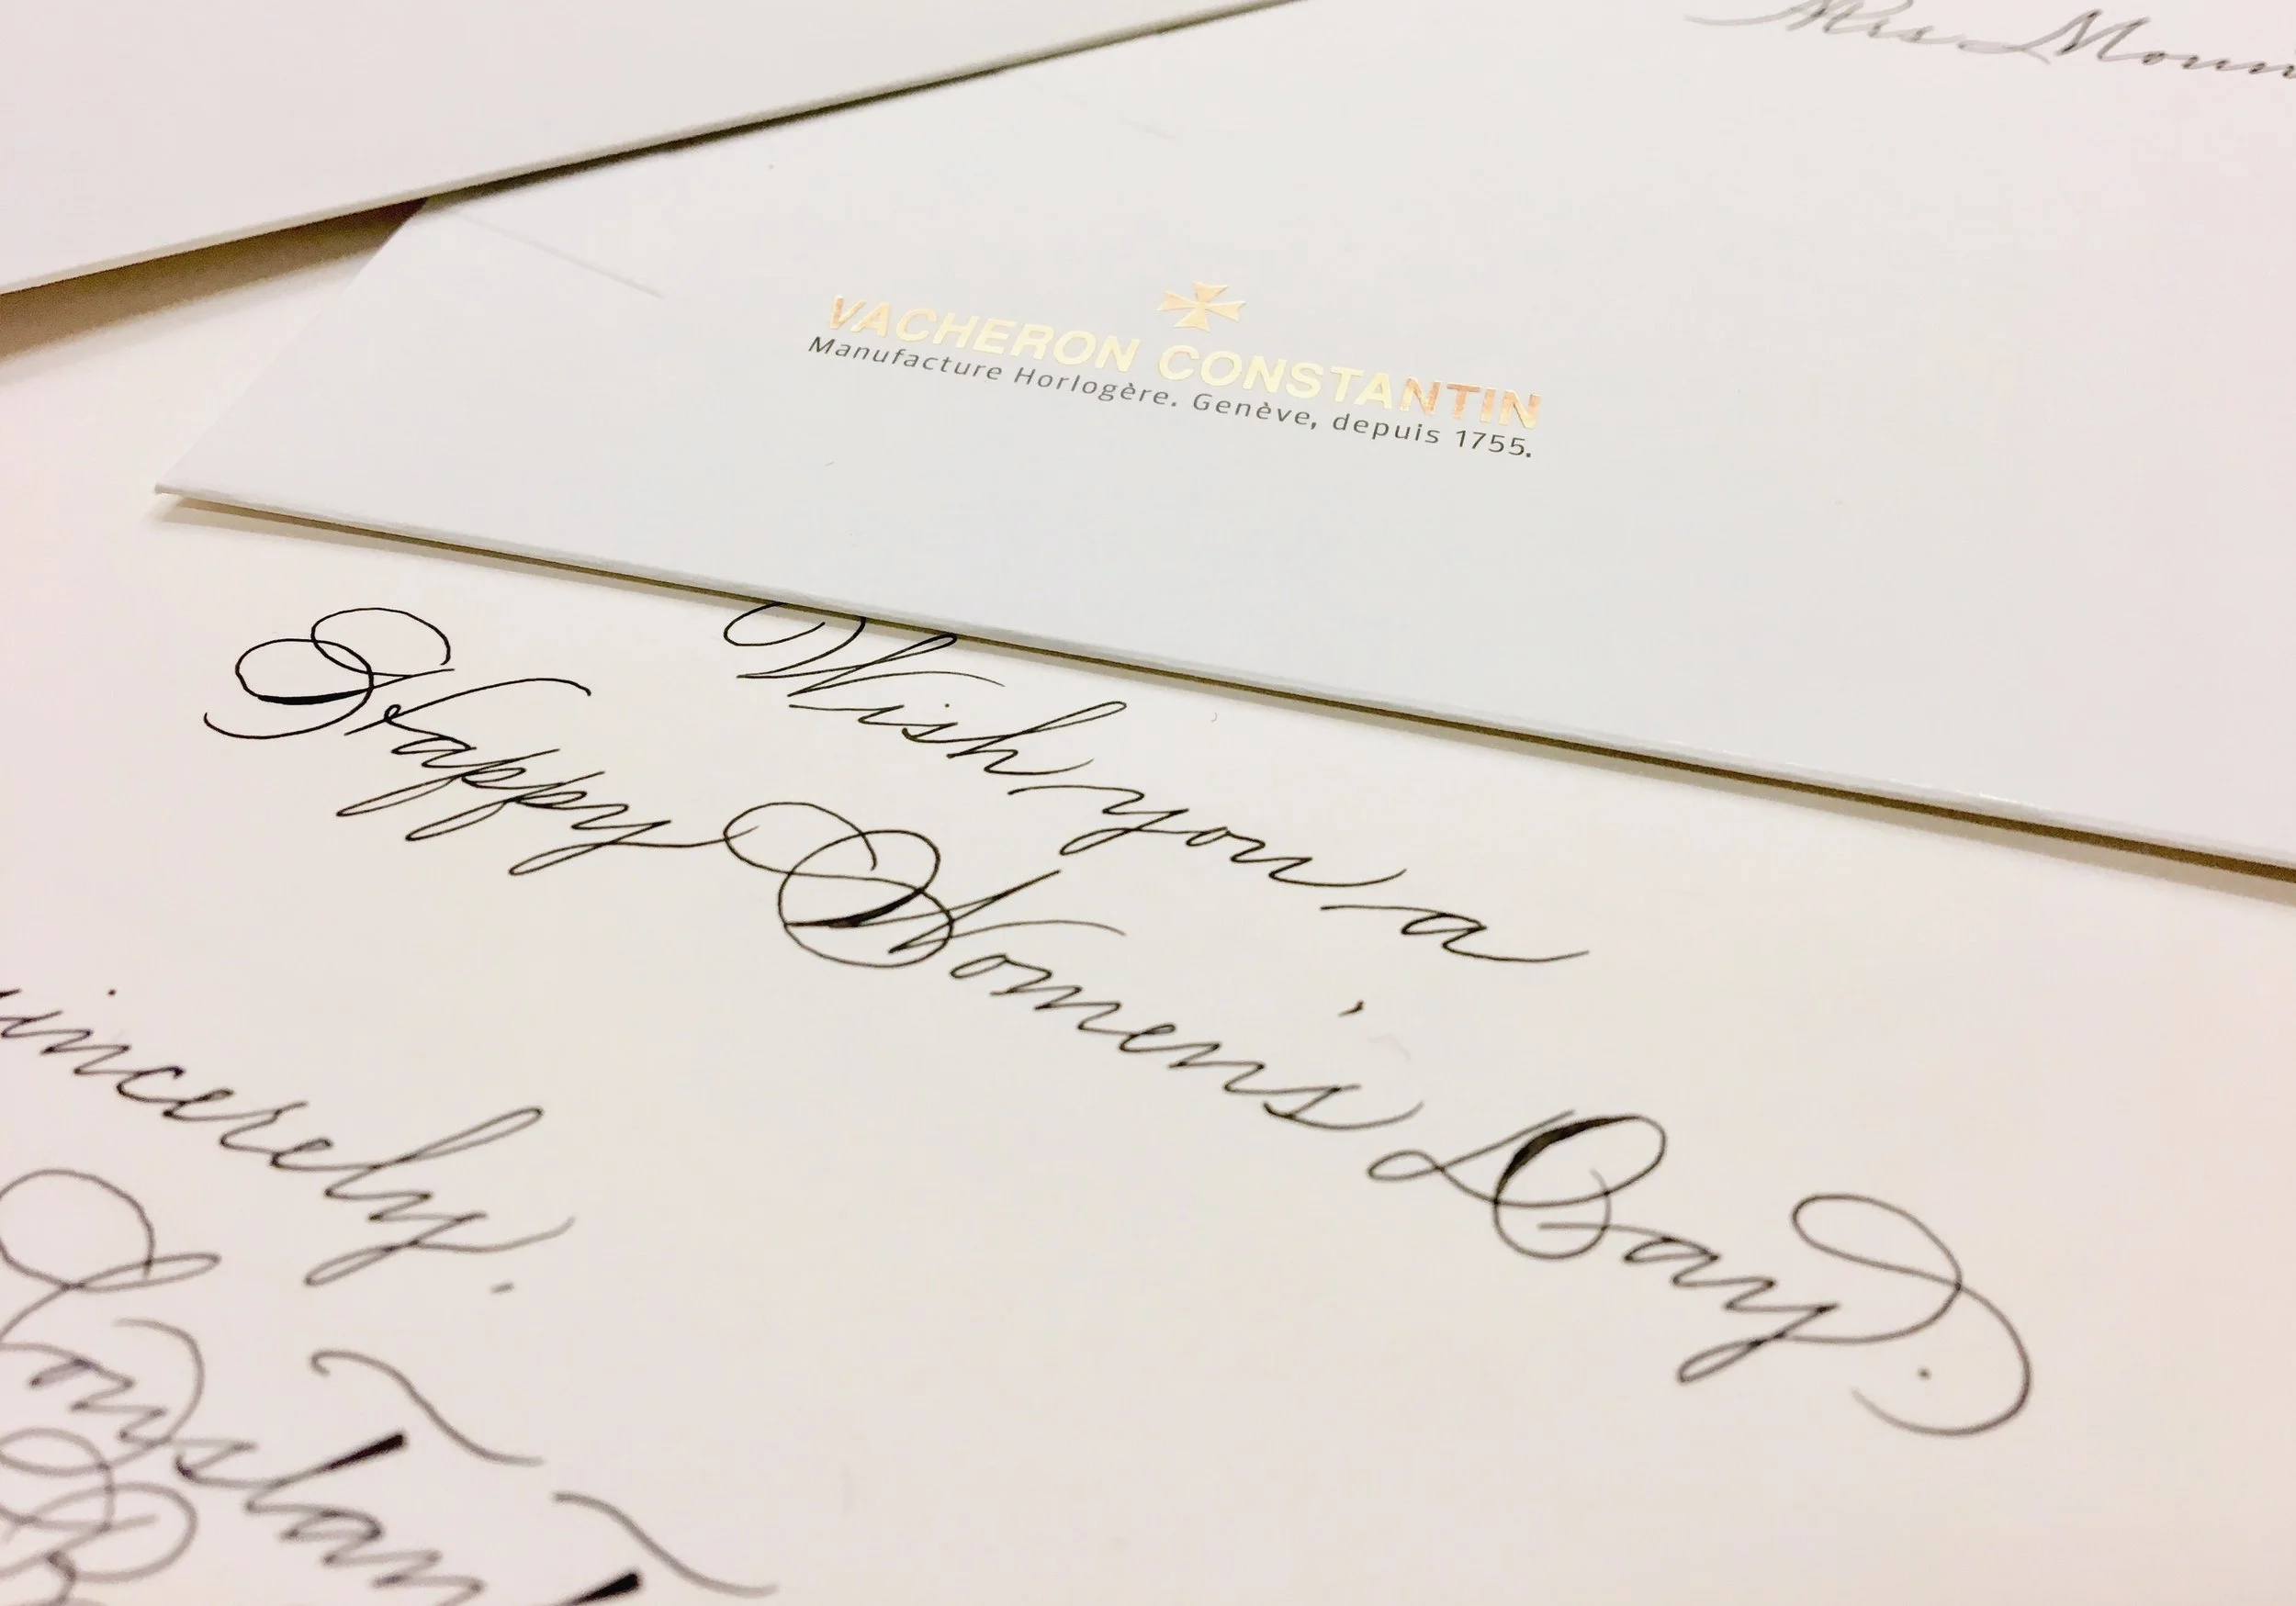 Mrs
VACHERON CONSTANTIN
Manufacture Horlogère. Genève, depuis 1755.
Wish you a
Happy Women's Day.
Sincerely,